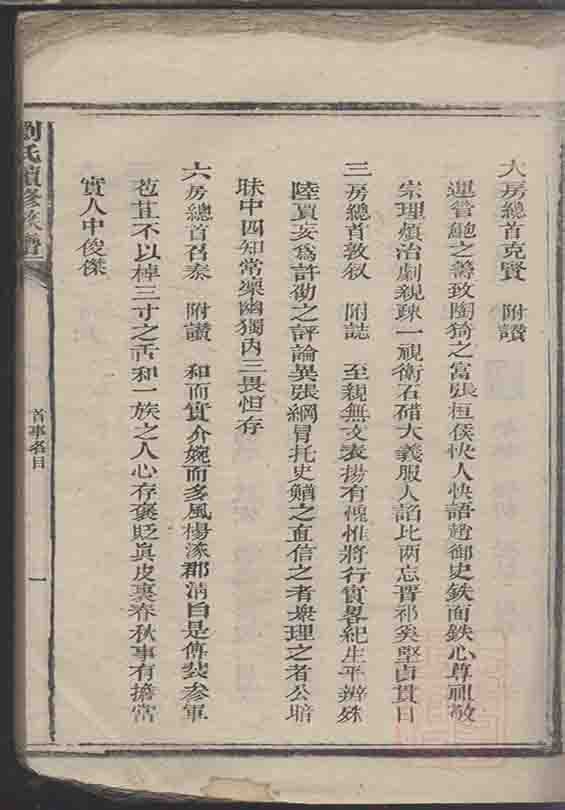 大房總首克賢　附讚
運管鮑之籌致陶猗之富張桓侯快人快語趙御史鉄面鉄心尊祖敬
宗理煩治劇親疎一視衛石碏大義服人諂比两忘晋祁奚堅貞貫日
三房總首敦叙　附誌　至親無文表揚有愧惟將行實畧紀生平辨殊
陸賈亥為許劭之評論異張綱冐托史鰌之直信之者衆理之者公暗
昧中四知常凛幽獨内三畏恒存
六房總首召泰　附讚　和而實介婉而多風楊涿郡清白是傳裴参軍
苞苴不以棹三寸之舌和一族之人心存褒貶眞皮裏春秋事有擔當
實人中俊傑
劉氏續修族譜
首事名目
一